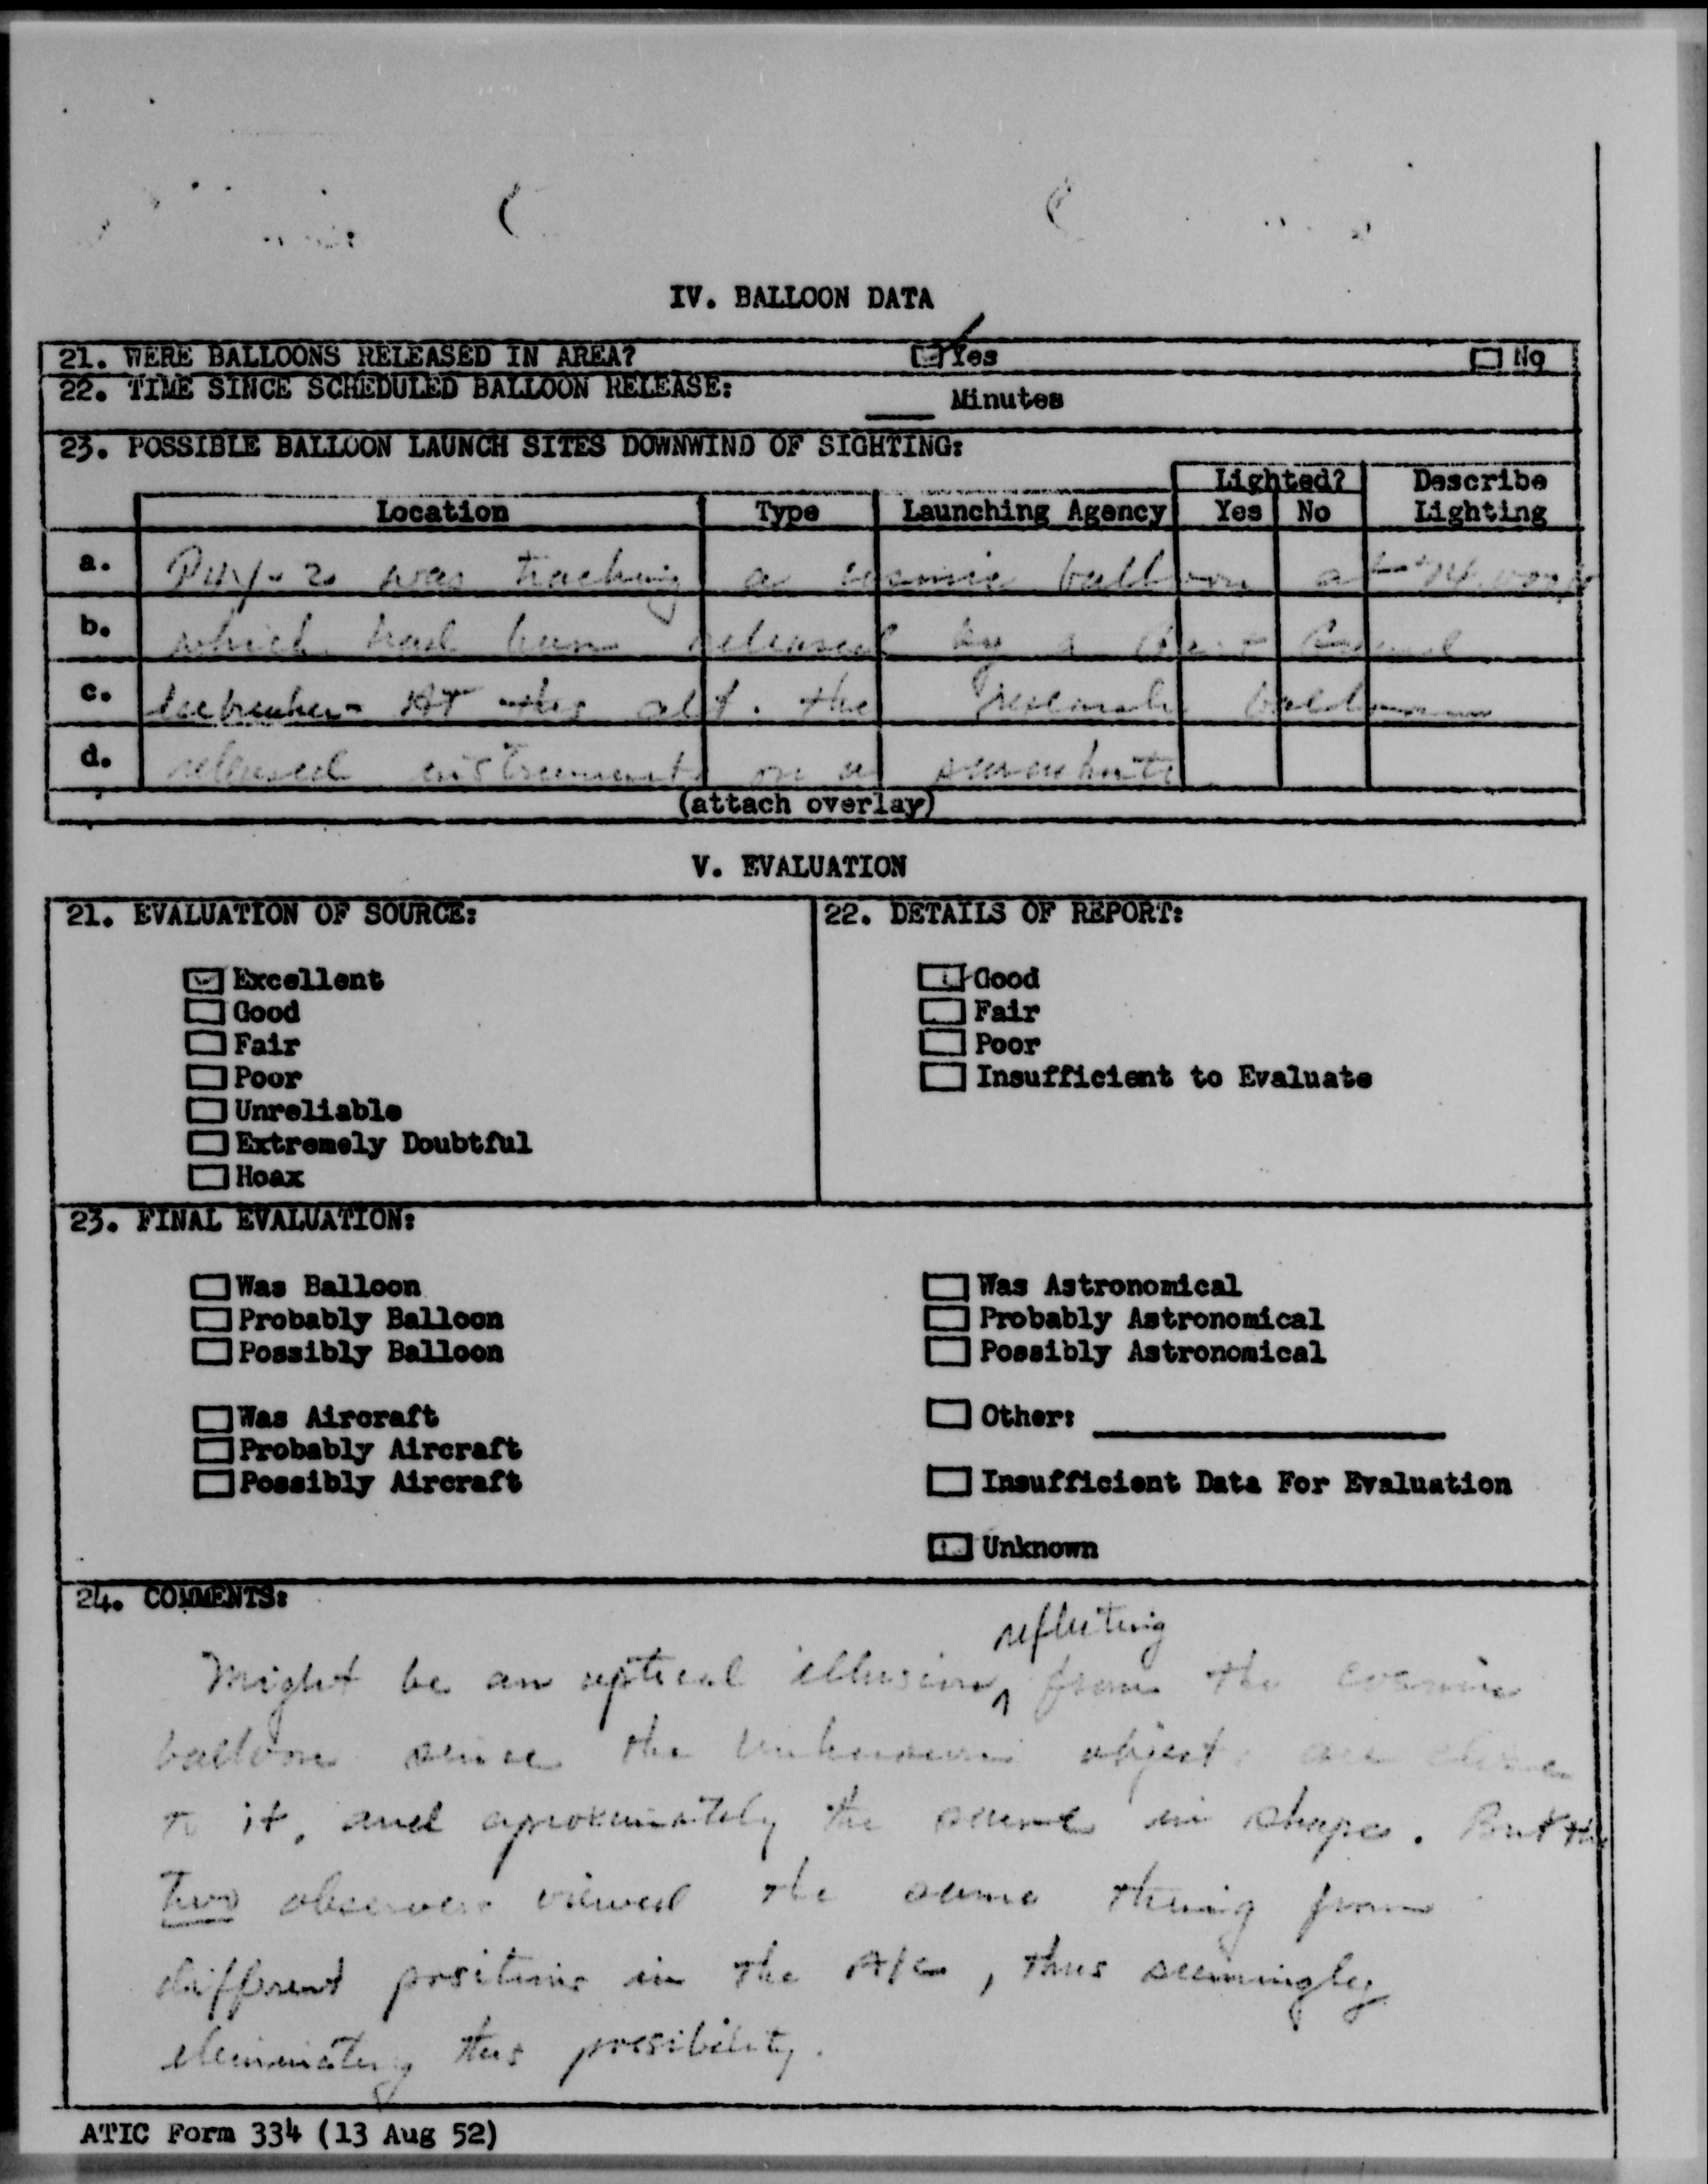 IV. BALLOON DATA
21. WERE BALLOONS RELEASED IN AREA? Yes No
22. TIME SINCE SCHEDULED BALLOON RELEASE: ____ Minutes
23. POSSIBLE BALLOON LAUNCH SITES DOWNWIND OF SIGHTING:
Lighted? Describe
Location Type Launching Agency Yes No Lighting
a. was tracking a cosmic balloon at
b. which had been released by a
c. At this alt. the research balloon
d. released instruments on a parachute
(attach overlay)
V. EVALUATION
21. EVALUATION OF SOURCE: 22. DETAILS OF REPORT:
Excellent Good
Good Fair
Fair Poor
Poor Insufficient to Evaluate
Unreliable
Extremely Doubtful
Hoax
23. FINAL EVALUATION:
Was Balloon Was Astronomical
Probably Balloon Probably Astronomical
Possibly Balloon Possibly Astronomical
Was Aircraft Other: ____
Probably Aircraft
Possibly Aircraft Insufficient Data For Evaluation
Unknown
24. COMMENTS:
reflecting
Might be an optical illusion ^ from the cosmic
balloon since the unknown objects are close
to it, and aproximately the same in shape. But the
two observers viewed the same thing from
different positions in the A/C, thus seemingly
eliminating this possibility.
ATIC Form 334 (13 Aug 52)